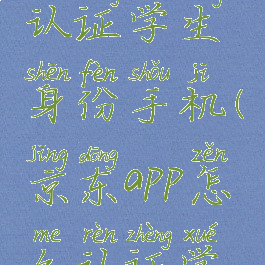 认证学生
shēn fèn shǒu jī
身份手机(
jīng dōng zěn
京东app怎
me rèn zhèng xué
么认证学